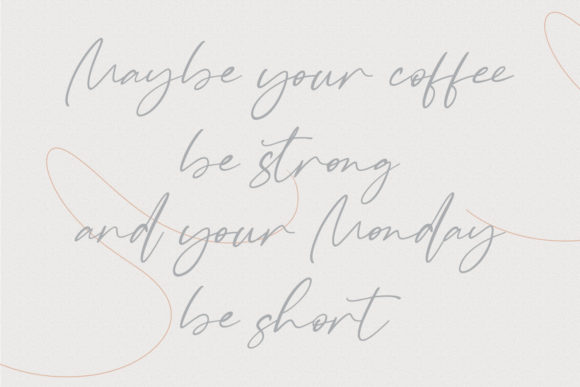 Maybe your coffee
be strong
and your Monday
be short